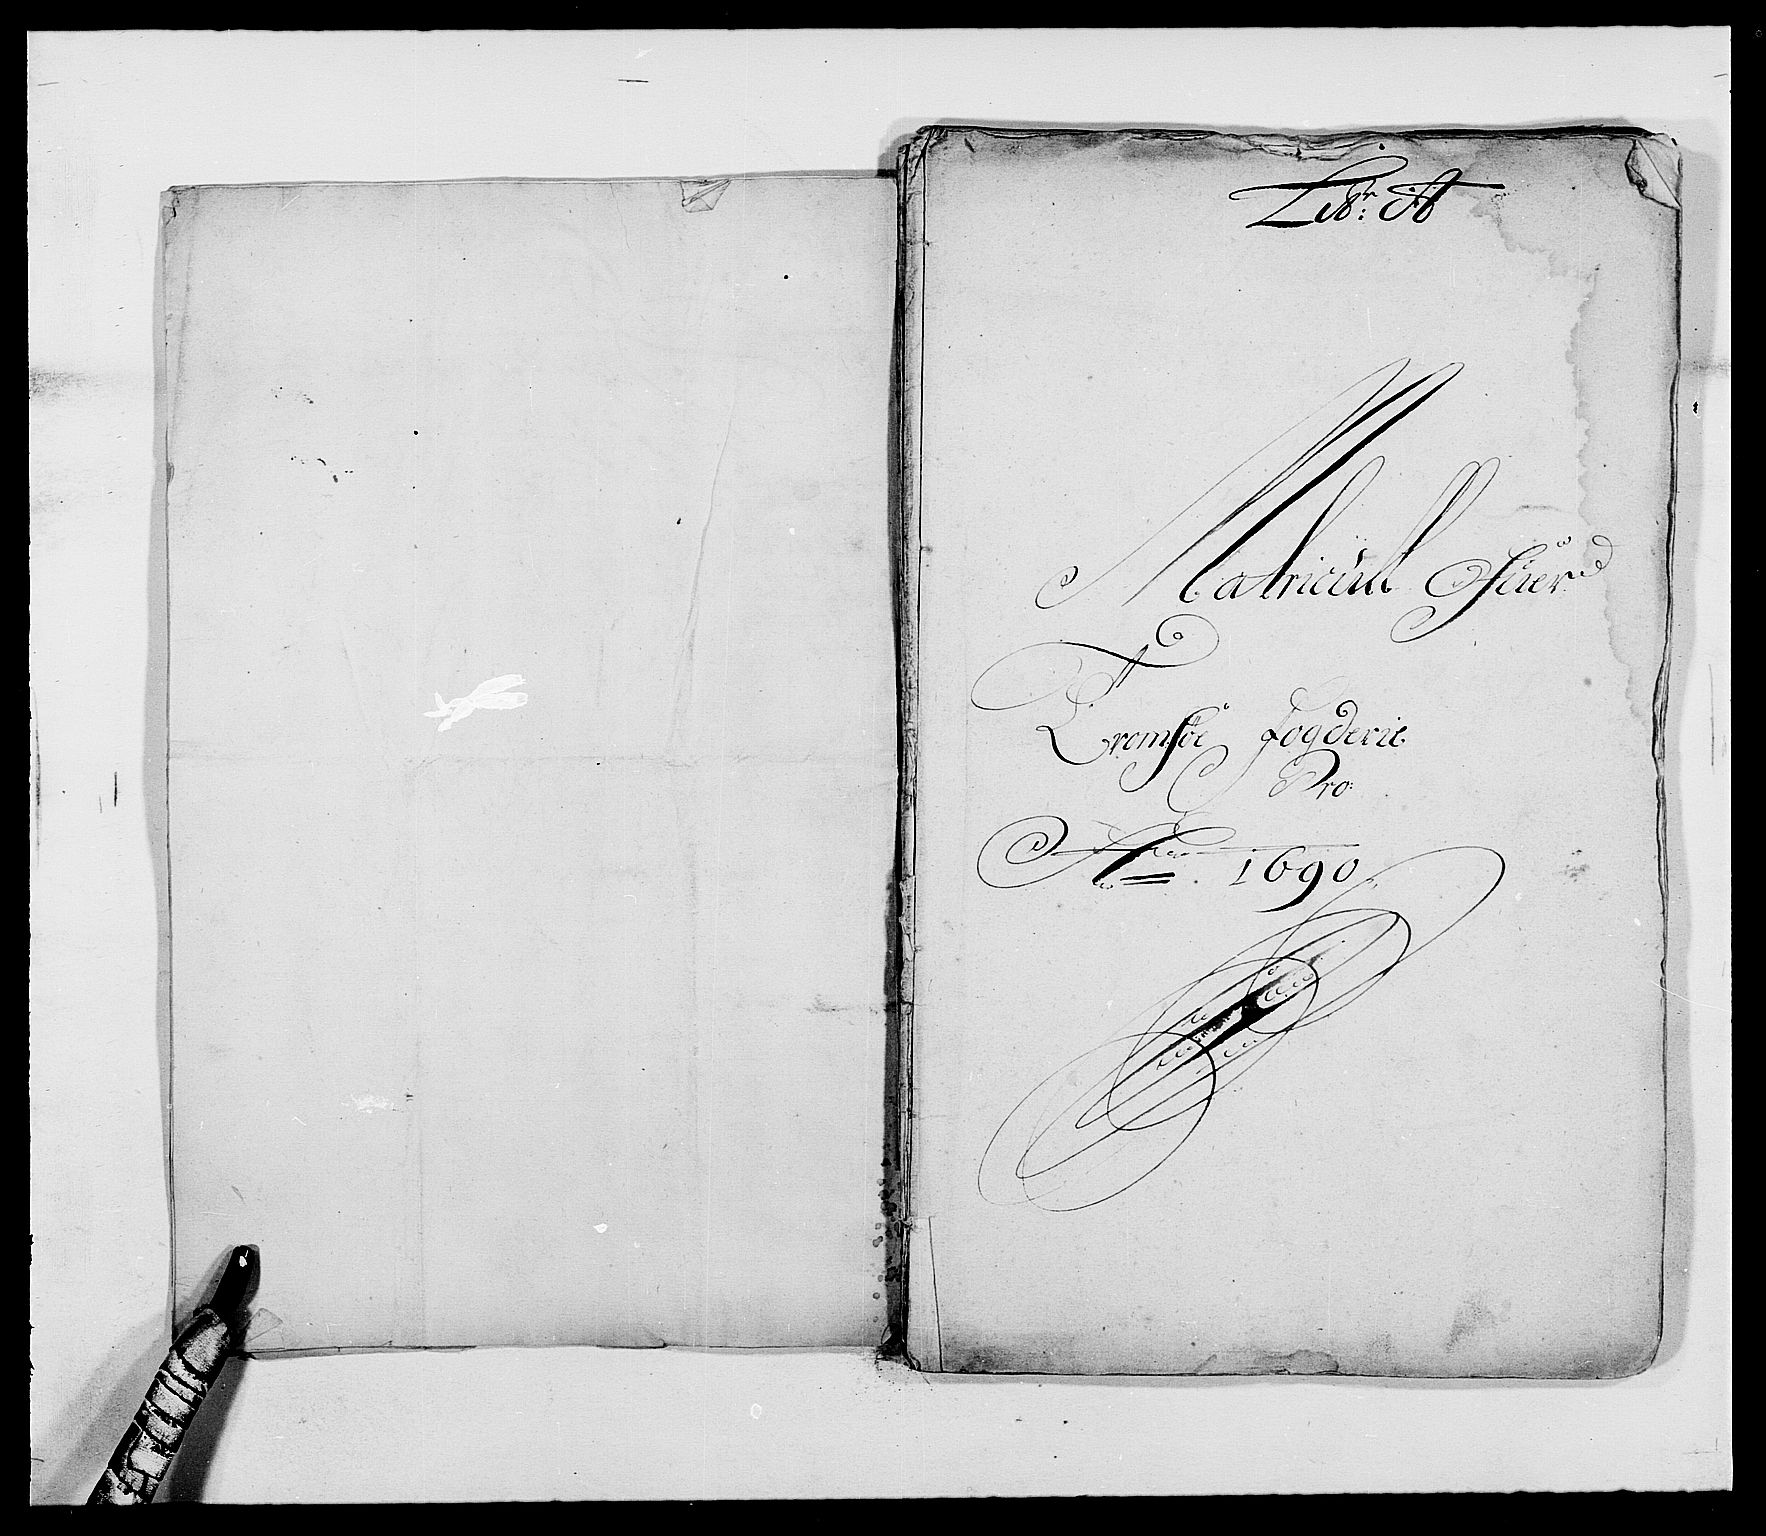 Litr: A
Matricul ofuer
Tromsøe fogderie
Pro
Ao 1690